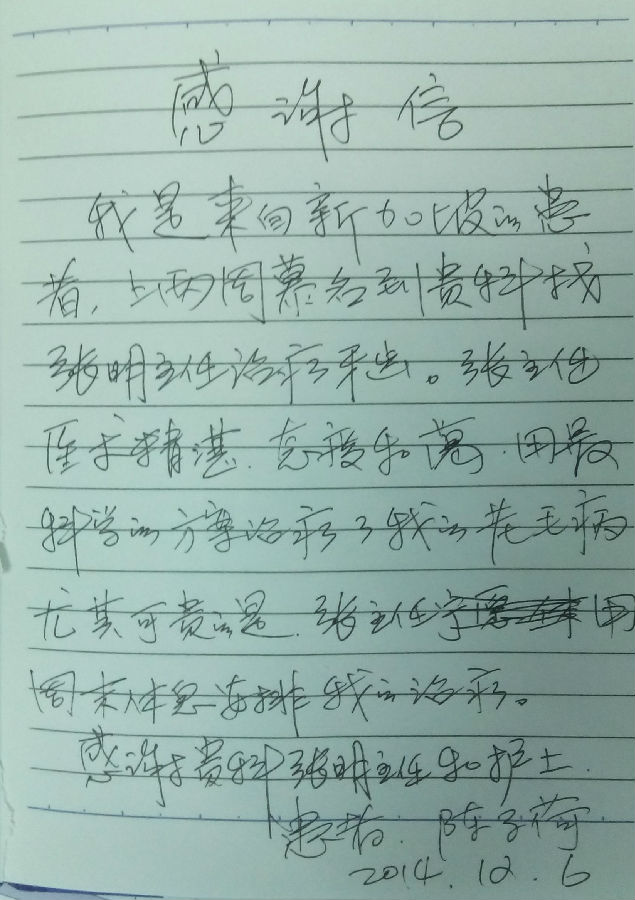 感谢信
我是来自新加坡的患
者,上两周慕名到贵科找
张明主任治疗牙齿。张主任
医术精湛.态度和蔼.用最
科学的方案治疗了我的老毛病
尤其可贵的是.张主任宁愿 用
周末休息安排我的治疗。
感谢贵科张明主任和护士.
患者.陈子荷
2014.12.6